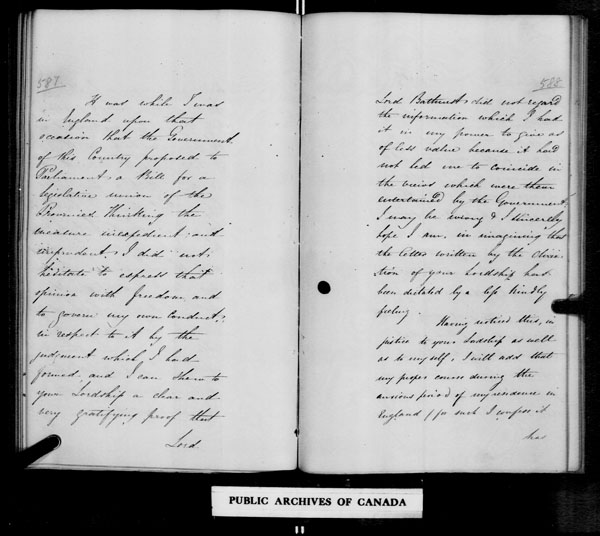 587
It was while I was
in England upon that
occasion that the Government
of this Country proposed to
Parliament a Bill for a
legislative union of the
Provinces Thinking the
measure inexpedient and
imprudent, I did not
hesitate to express that
opinion with freedom and
to govern my own conduct
in respect to it by the
judgment which I had
formed and I can shew to
your Lordship a clear and
very gratifying proof that
Lord
588
Lord Bathurst did not regard
the information which I had
it in my power to give as
of less value because it had
not led me to coincide in
the views which were then
entertained by the Government,
I may be wrong & I sincerely
hope I am, in imagining that
the letter written by the direc-
tion of your Lordship has
been dictated by a less kindly
feeling.
Having noticed this, in
justice to your Lordship as well
as to myself, I will add that
my proper course during the
anxious period of my residence in
England (for such I confess it
has
PUBLIC ARCHIVES OF CANADA